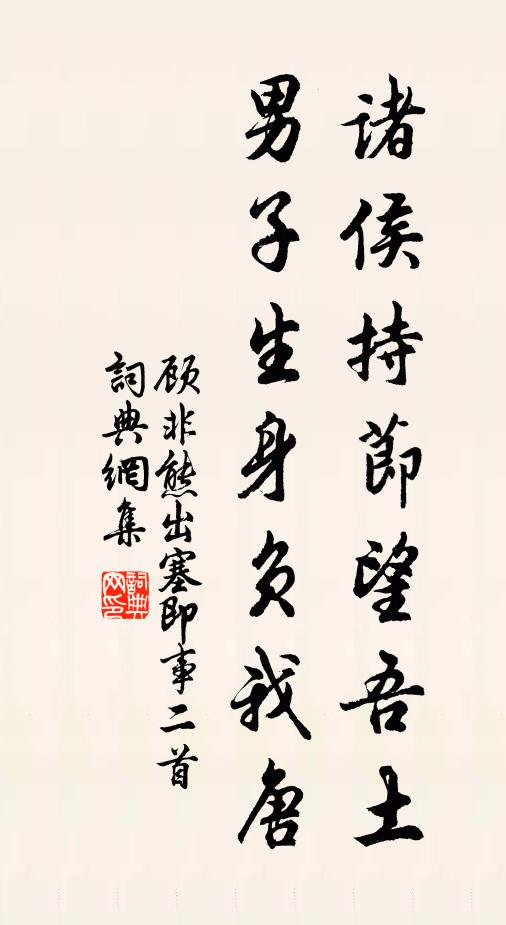 諸侯持節望吾土
男子生身負我唐
顧非熊出塞即事二首
詞典網集
詞典網印